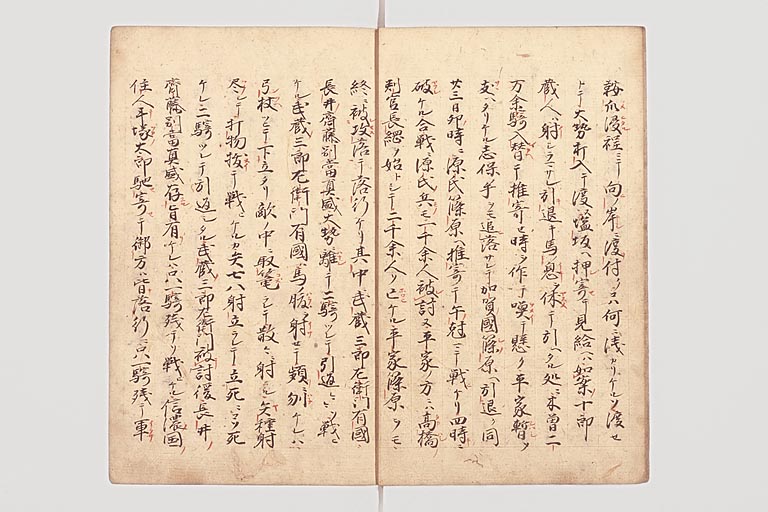 鞍爪浸程ニテ向ノ岸ニ渡付タリ只何ニ浅カリケルソ渡セ
トテ大勢打入テ渡塩坂ヘ押寄テ見給ヘハ如案十郎
蔵人ハ射シラマサレ引退キ馬息ヲ休テ引ヘタル処ニ木曽二
万余騎入替テ推寄セ時ヲ作テ喚テ懸ク平家暫ク
支ヘタリケル志保手ヲモ追落サレテ加賀國篠原ヘ引退ク同
廿三日卯時ニ源氏篠原ヘ推寄テ午剋ニテ戦ケリ四時ニ
破ケル合戦ニ源氏兵モ一千余人被討ヌ平家ノ方ニハ高橋
判官長綱ヲ始トシテ二千余人ソ亡ケル平家篠原ヲモ
終ニ被攻落テ落行ケリ其中武蔵三郎左衛門有國
長井齋藤別當眞盛大勢ニ離テ二騎ツレテ引返シ戦
ケル武蔵三郎左衛門有國馬ノ腹ヲ射セテ頻ニ刎ケレハ
弓杖ニテ下立タリ敵ノ中ニ取篭ラレテ散々ニ射ル矢種射
尽シテ打物抜テ戦ケルカ矢七八射立ラレテ立死ニコソ死
ケレ二騎ツレテ引返シタル武蔵三郎左衛門被討後長井ノ
齋藤別當眞盛存旨有ケレハ只一騎残テソ戦ケル信濃國
住人手塚太郎馳寄テ御方ハ皆落行ニ只一騎残テ軍